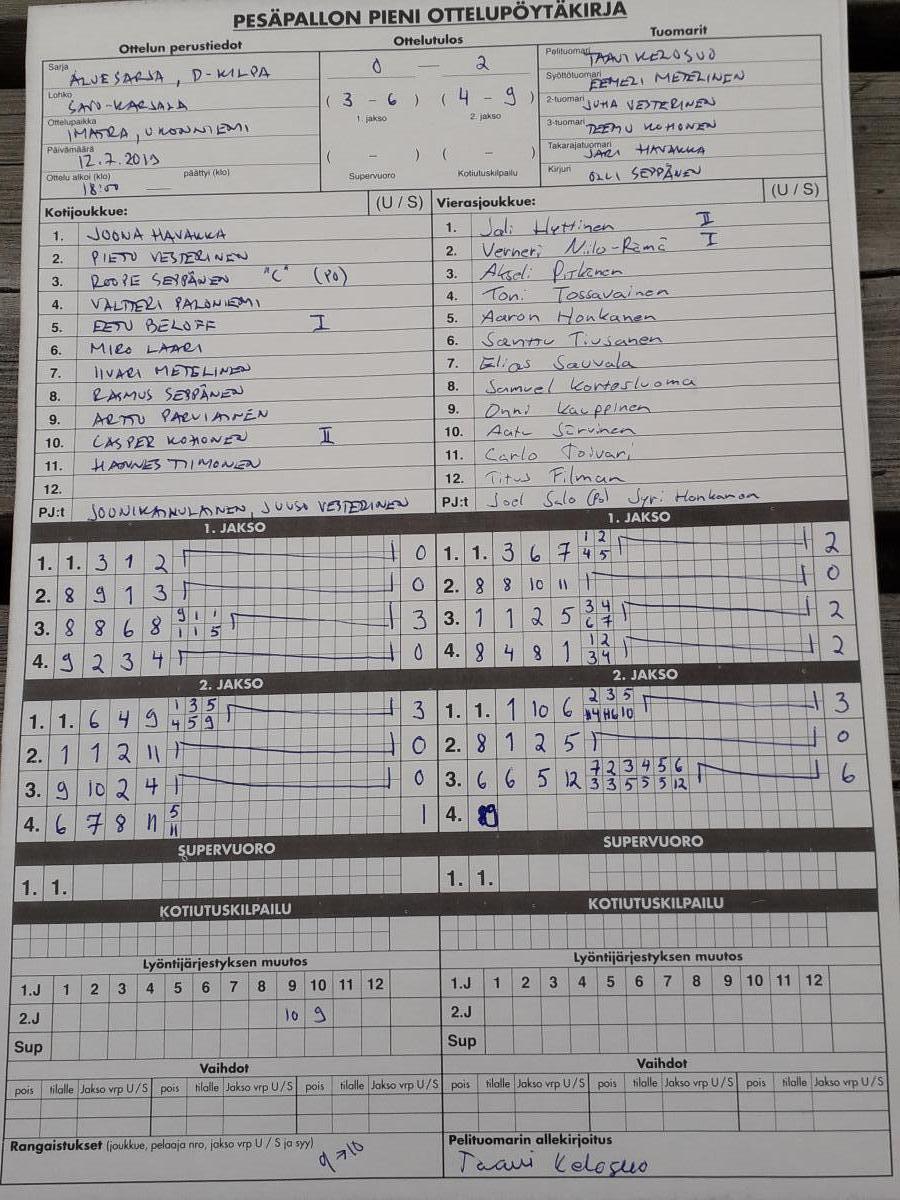 PESÄPALLON PIENI OTTELUPÖYTÄKIRJA
Ottelun perustiedot
Ottelutulos
Tuomarit
Sarja ALUESARJA, D-KILPA
Lohko SAVO-KARJALA
Ottelupaikka IMATRA, UKONNIEMI
Päivämäärä 12.7.2019
Ottelu alkoi (klo) 18:00 päättyi (klo)
0 — 2
( 3 - 6 ) ( 4 - 9 )
1. jakso 2. jakso
( - ) ( - )
Supervuoro Kotiutuskilpailu
Pelituomari TAAVI KELOSUO
Syöttötuomari EEMELI METELINEN
2-tuomari JUHA VESTERINEN
3-tuomari TEEMU KOHONEN
Takarajatuomari JARI HAVAKKA
Kirjuri OLLI SEPPÄNEN
Kotijoukkue: (U / S)
1. JOONA HAVAKKA
2. PIETU VESTERINEN
3. ROOPE SEPPÄNEN "C" (PO)
4. VALTTERI PALONIEMI
5. EETU BELOFF I
6. MIRO LAARI
7. IIVARI METELINEN
8. RASMUS SEPPÄNEN
9. ARTTU PARVIAINEN
10. CASPER KOHONEN II
11. HANNES TIIMONEN
12.
PJ:t JOONI KAINULAINEN, JUUSO VESTERINEN
Vierasjoukkue: (U / S)
1. Jali Hyttinen II
2. Verneri Niilo-Rämä I
3. Akseli Pitkänen
4. Toni Tossavainen
5. Aaron Honkanen
6. Santtu Tiusanen
7. Elias Sauvala
8. Samuel Kortesluoma
9. Onni Kauppinen
10. Aatu Sirvinen
11. Carlo Toivari
12. Titus Filman
PJ:t Joel Salo (Po) Jyri Honkanen
1. JAKSO
1. 1. 3 1 2 0
2. 8 9 1 3 0
3. 8 8 6 8 9 1 1 3
1 1 5
4. 9 2 3 4 0
1. JAKSO
1. 1. 3 6 7 1 2 2
4 5
2. 8 8 10 11 0
3. 1 1 2 5 3 4 2
6 7
4. 8 4 8 1 1 2 2
3 4
2. JAKSO
1. 1. 6 4 9 1 3 5 3
4 5 9
2. 1 1 2 11 0
3. 9 10 2 4 0
4. 6 7 8 11 5 1
11
2. JAKSO
1. 1. 1 10 6 2 3 5 3
2. 8 1 2 5 0
3. 6 6 5 12 7 2 3 4 5 6 6
3 3 5 5 5 12
4.
SUPERVUORO
1. 1.
SUPERVUORO
1. 1.
KOTIUTUSKILPAILU
KOTIUTUSKILPAILU
Lyöntijärjestyksen muutos
1.J 1 2 3 4 5 6 7 8 9 10 11 12
2.J 10 9
Sup
Lyöntijärjestyksen muutos
1.J 1 2 3 4 5 6 7 8 9 10 11 12
2.J
Sup
Vaihdot
pois tilalle Jakso vrp U / S pois tilalle Jakso vrp U / S pois tilalle Jakso vrp U / S
Vaihdot
pois tilalle Jakso vrp U / S pois tilalle Jakso vrp U / S pois tilalle Jakso vrp U / S
Rangaistukset (joukkue, pelaaja nro, jakso vrp U / S ja syy)
9→10
Pelituomarin allekirjoitus
Taavi Kelosuo